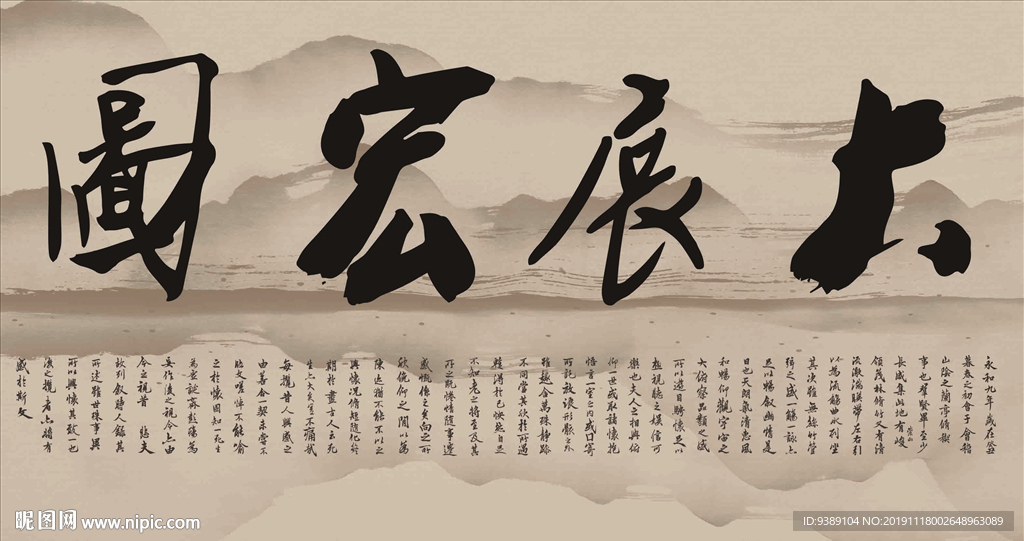 大展宏圖
永和九年歲在癸丑
暮春之初會于會稽
山陰之蘭亭脩禊
事也群賢畢至少
長咸集此地有崇山峻
領茂林脩竹又有清
流激湍暎帶左右引
以為流觴曲水列坐
其次雖無絲竹管
弦之盛一觴一詠亦
足以暢敘幽情是
日也天朗氣清惠風
和暢仰觀宇宙之
大俯察品類之盛
所以遊目騁懷足以
極視聽之娛信可
樂也夫人之相與俯
仰一世或取諸懷抱
悟言一室之內或因寄
所託放浪形骸之外
雖趣舍萬殊靜躁
不同當其欣於所遇
蹔得於己怏然自足
不知老之將至及其
所之既惓情隨事遷
感慨係之矣向之所
欣俛仰之閒以為
陳迹猶不能不以之
興懷況脩短隨化終
期於盡古人云死
生亦大矣豈不痛哉
每攬昔人興感之
由若合一契未嘗不
臨文嗟悼不能喻
之於懷固知一死生
為虛誕齊彭殤為
妄作後之視今亦由
今之視昔 悲夫
故列敘時人錄其
所述雖世殊事異
所以興懷其致一也
後之攬者亦將有
感於斯文
昵图网 www.nipic.com
ID:9389104 NO:20191118002648963089